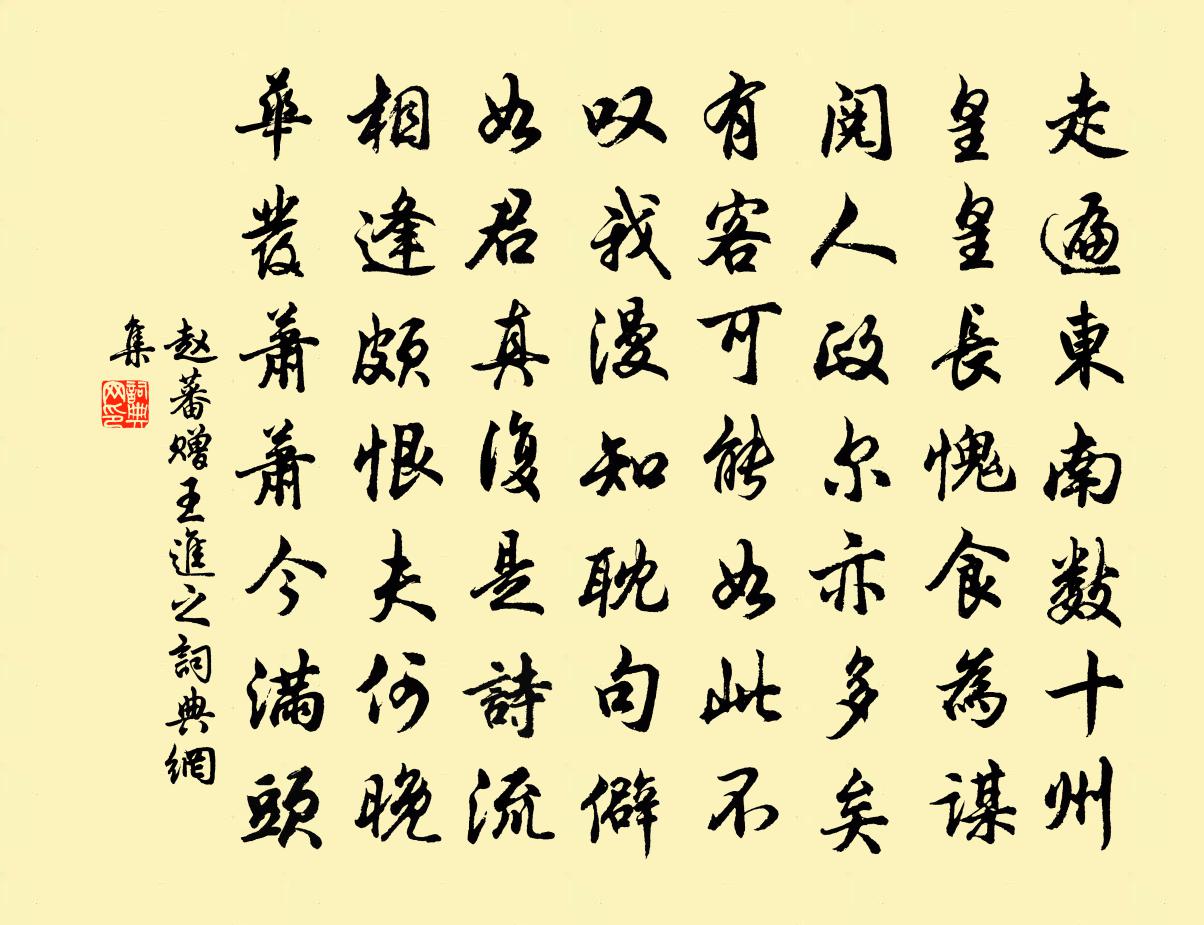 走遍東南數十州
皇皇長愧食為謀
閱人政尔亦多矣
有客可能如此不
叹我漫知耽句僻
如君真復是詩流
相逢頗恨夫何晚
華發蕭蕭今滿頭
赵蕃赠王進之詞典網
集
詞典
网印